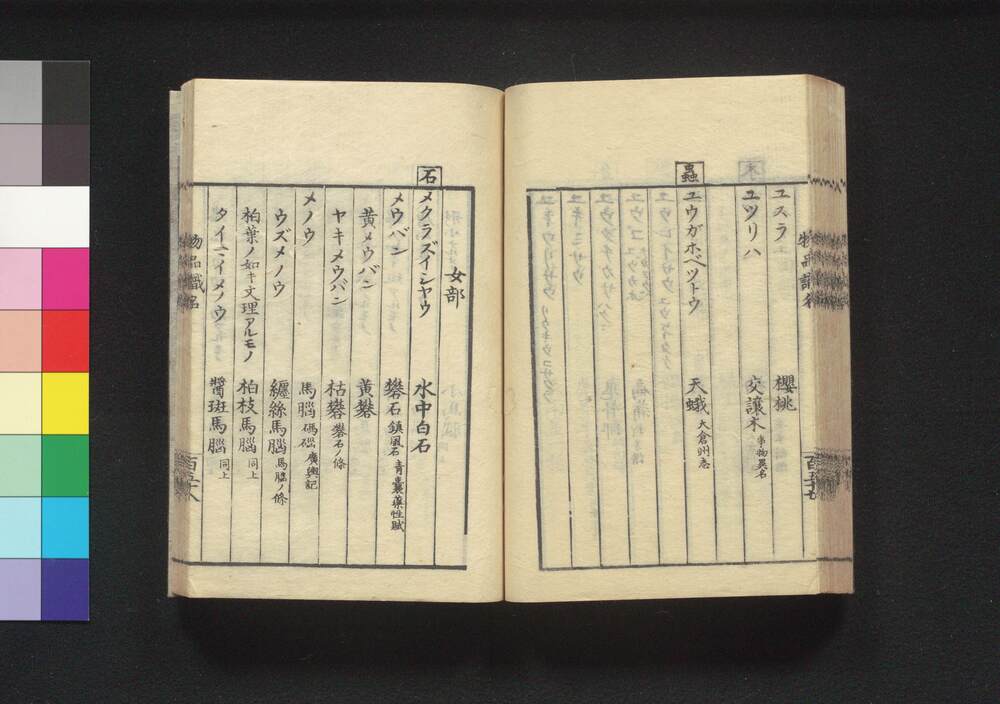 ユスラ 櫻桃
ユツリハ 交讓木 事物異名
蟲
ユウガホベツトウ 天蛾 大倉州志
物品識名
女部
石
メクラズイシヤウ 水中白石
メウバン 礬石 鎮風石 青囊藥性賦
黄メウバン 黄礬
ヤキメウバン 枯礬 礬石ノ條
メノウ 馬腦 碼碯 廣輿記
ウズメノウ 纏絲馬腦 馬腦ノ條
柏葉ノ如キ文理アルモノ 柏枝馬腦 同上
タイミイメノウ 醬斑馬腦 同上
物品識名
百五十八